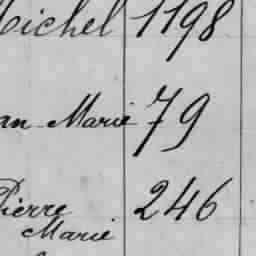 Michel 1198
an Marie 79
Pierre 246
Marie